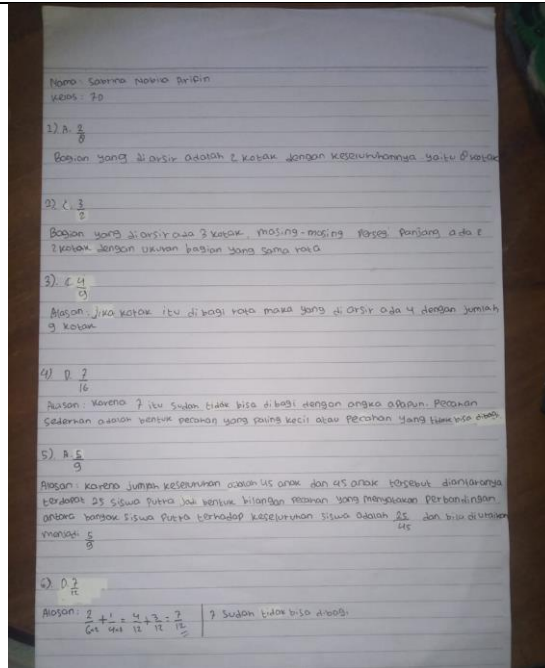 Nama : Sabrina Nabila Aripin
Kelas : 7D
1) A. 2/8
Bagian yang diarsir adalah 2 kotak dengan keseluruhannya yaitu 8 kotak
2) C. 3/2
Bagian yang diarsir ada 3 kotak, masing-masing Perseg Panjang ada 2
2 kotak dengan ukuran bagian yang sama rata
3). C. 4/9
Alasan : Jika kotak itu dibagi rata maka yang diarsir ada 4 dengan jumlah
9 kotak
4) D. 7/16
Alasan : Karena 7 itu sudah tidak bisa dibagi dengan angka apapun. Pecahan
sederhan adalah bentuk pecahan yang paling kecil atau pecahan yang tidak bisa dibagi
5) A. 5/9
Alasan : Karena jumlah keseluruhan adalah 45 anak dan 45 anak tersebut diantaranya
terdapat 25 siswa Putra Jadi bentuk bilangan pecahan yang menyatakan Perbandingan
antara banyak siswa Putra terhadap keseluruhan siswa adalah 25/45 dan bila diuraikan
menjadi 5/9
6). D. 7/12
Alasan : 2/6×2 + 1/4×3 = 4/12 + 3/12 = 7/12 | 7 sudah tidak bisa dibagi